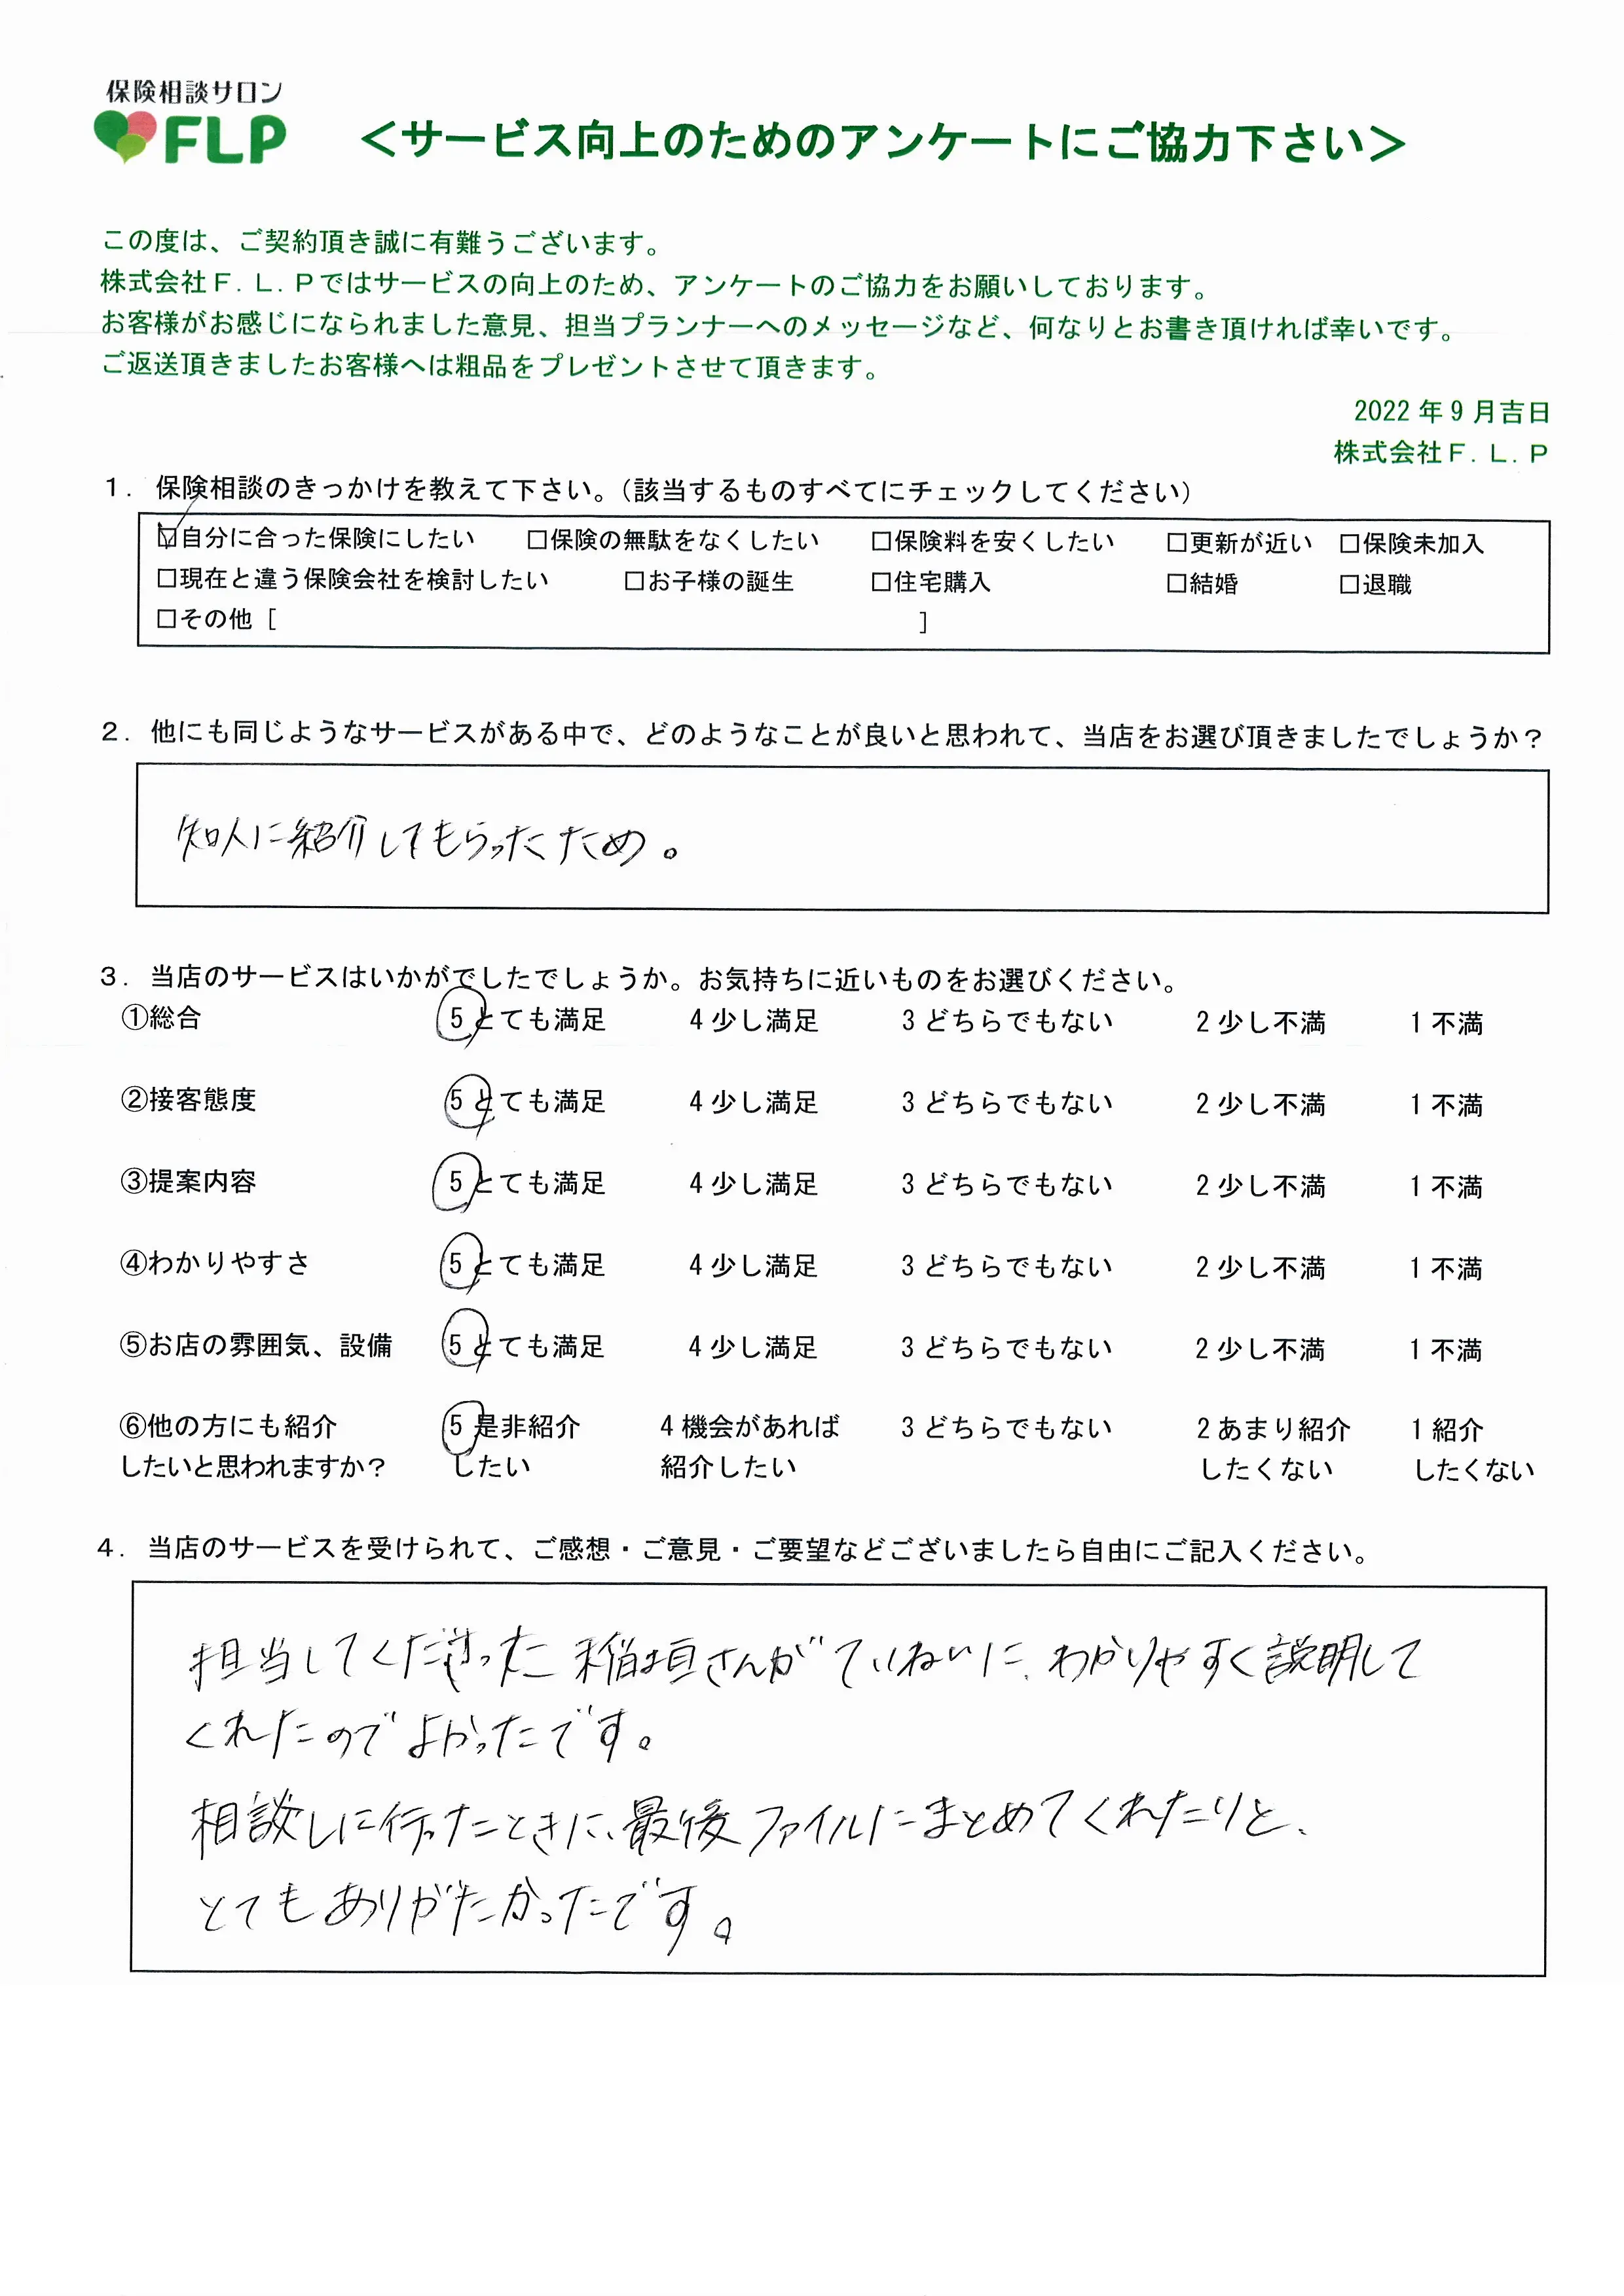 保険相談サロン
FLP
＜サービス向上のためのアンケートにご協力下さい＞
この度は、ご契約頂き誠に有難うございます。
株式会社Ｆ．Ｌ．Ｐではサービスの向上のため、アンケートのご協力をお願いしております。
お客様がお感じになられました意見、担当プランナーへのメッセージなど、何なりとお書き頂ければ幸いです。
ご返送頂きましたお客様へは粗品をプレゼントさせて頂きます。
2022 年 9 月吉日
株式会社Ｆ．Ｌ．Ｐ
１．保険相談のきっかけを教えて下さい。（該当するものすべてにチェックしてください）
☑自分に合った保険にしたい □保険の無駄をなくしたい □保険料を安くしたい □更新が近い □保険未加入
□現在と違う保険会社を検討したい □お子様の誕生 □住宅購入 □結婚 □退職
□その他［ ］
２．他にも同じようなサービスがある中で、どのようなことが良いと思われて、当店をお選び頂きましたでしょうか？
知人に紹介してもらったため。
３．当店のサービスはいかがでしたでしょうか。お気持ちに近いものをお選びください。
①総合 5 とても満足 4 少し満足 3 どちらでもない 2 少し不満 1 不満
②接客態度 5 とても満足 4 少し満足 3 どちらでもない 2 少し不満 1 不満
③提案内容 5 とても満足 4 少し満足 3 どちらでもない 2 少し不満 1 不満
④わかりやすさ 5 とても満足 4 少し満足 3 どちらでもない 2 少し不満 1 不満
⑤お店の雰囲気、設備 5 とても満足 4 少し満足 3 どちらでもない 2 少し不満 1 不満
⑥他の方にも紹介 5 是非紹介 4 機会があれば 3 どちらでもない 2 あまり紹介 1 紹介
したいと思われますか？ したい 紹介したい したくない したくない
４．当店のサービスを受けられて、ご感想・ご意見・ご要望などございましたら自由にご記入ください。
担当してくださった 稲垣さんが ていねいに、わかりやすく説明して
くれたので よかったです。
相談しに行ったときに、最後 ファイルにまとめてくれたりと、
とても ありがたかったです。